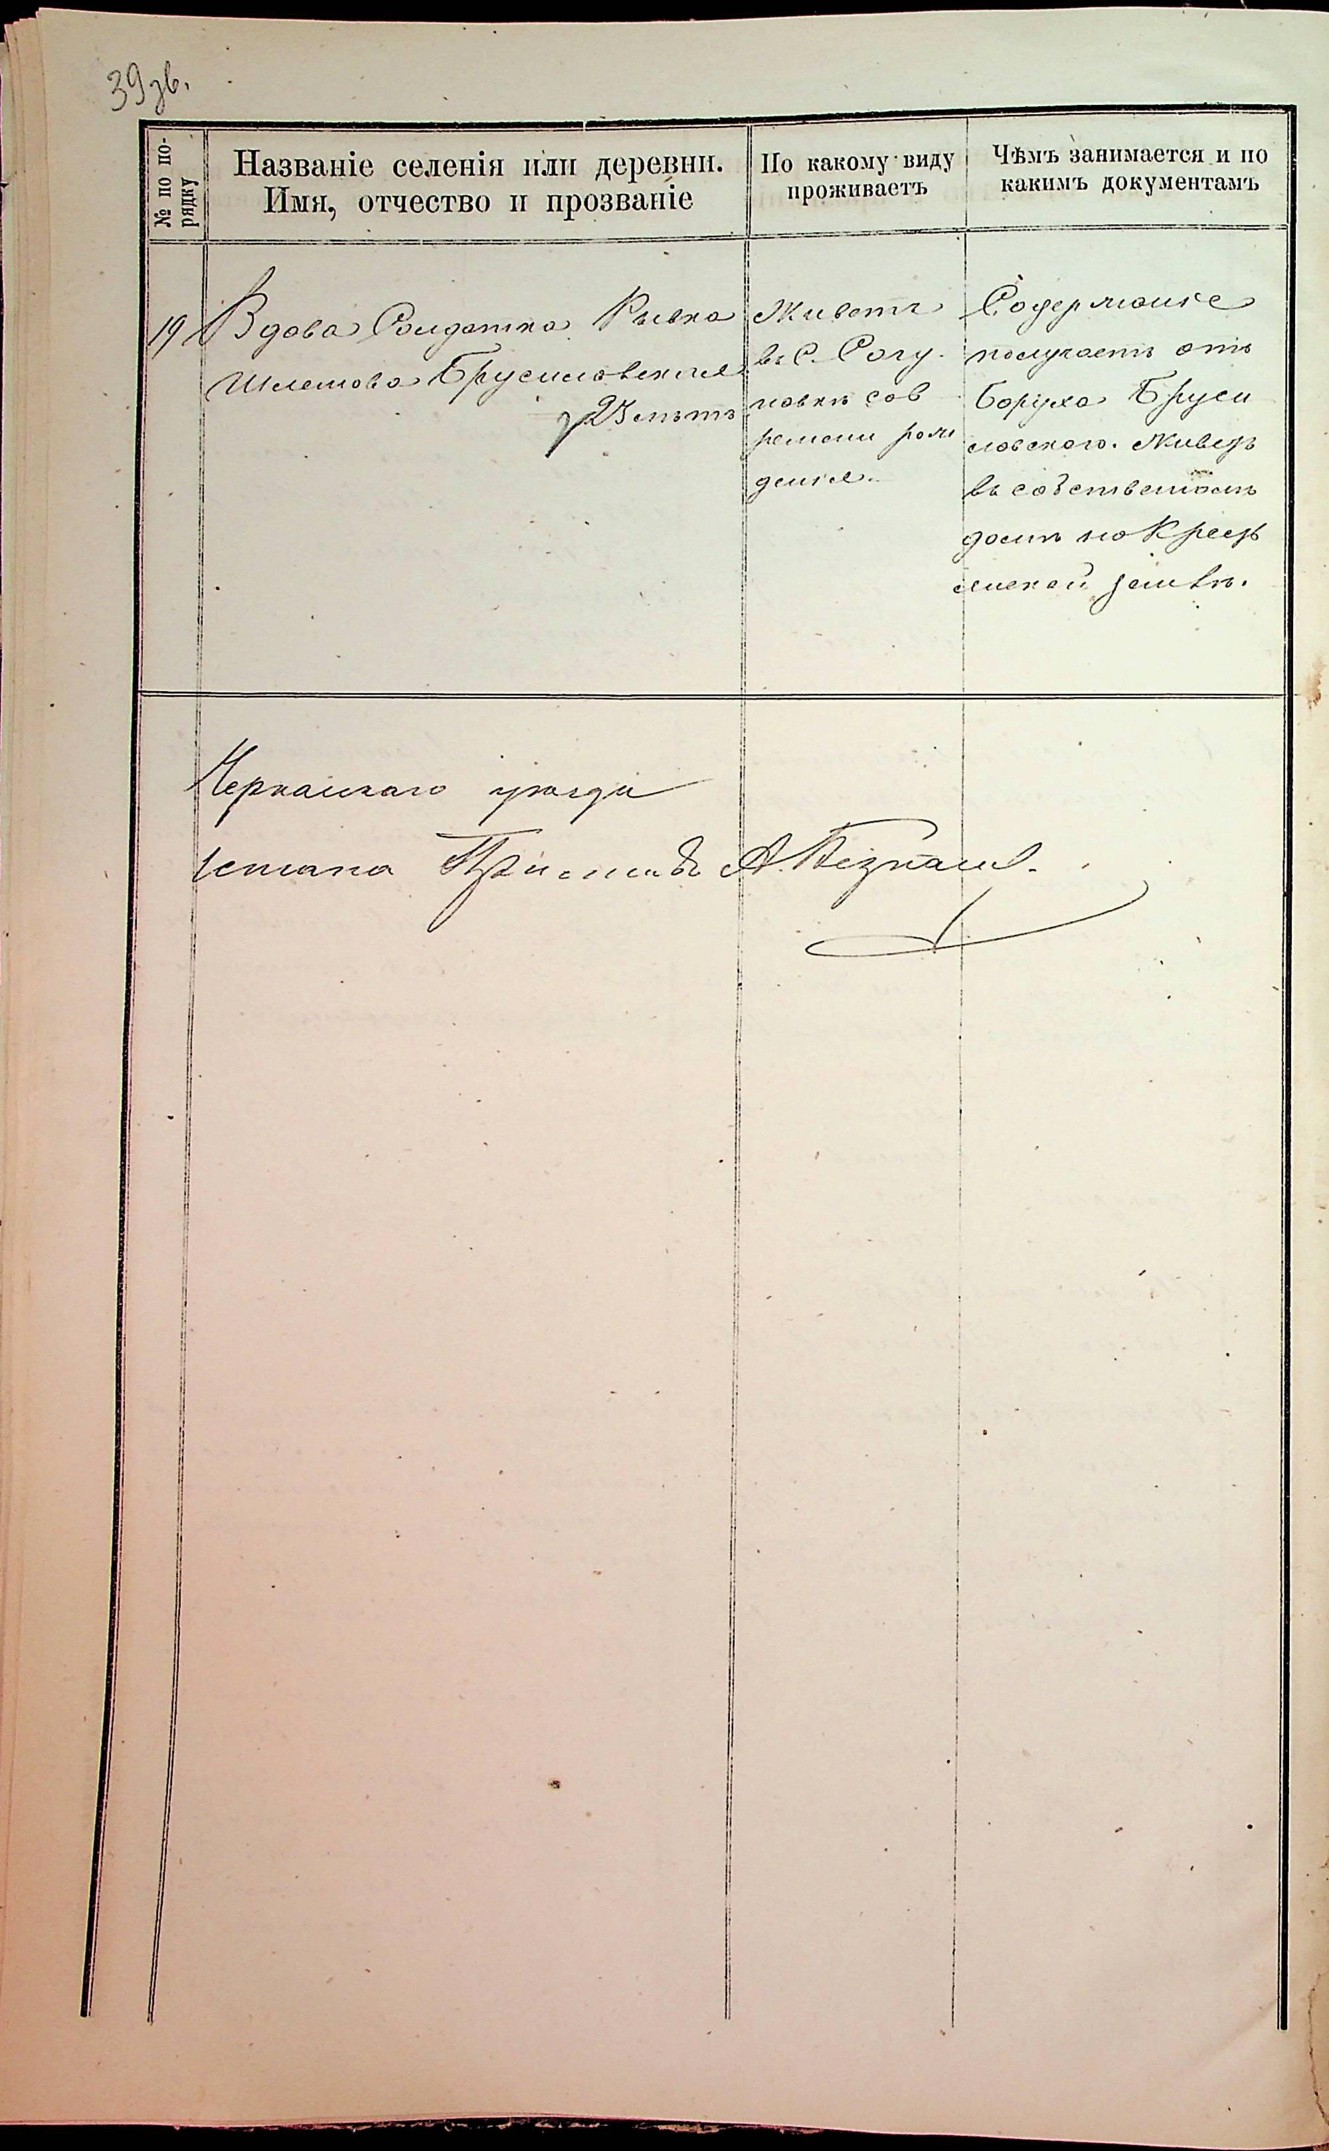 39зв.
№ по по-
рядку
Названіе селенія или деревни.
Имя, отчество и прозваніе
По какому виду
проживаетъ
Чѣмъ занимается и по
какимъ документамъ
19
Вдова Солдатка Рывка
Шлемова Брусиловская
25 лѣтъ
Живетъ
въ С. Согу-
новкѣ со в
ремени рож
денія.
Содержаніе
получаетъ отъ
Боруха Бруси
ловского. Живетъ
въ собственномъ
домѣ на Крест
янской землѣ.
Черкасскаго уѣзда
1 стана Приставъ А.